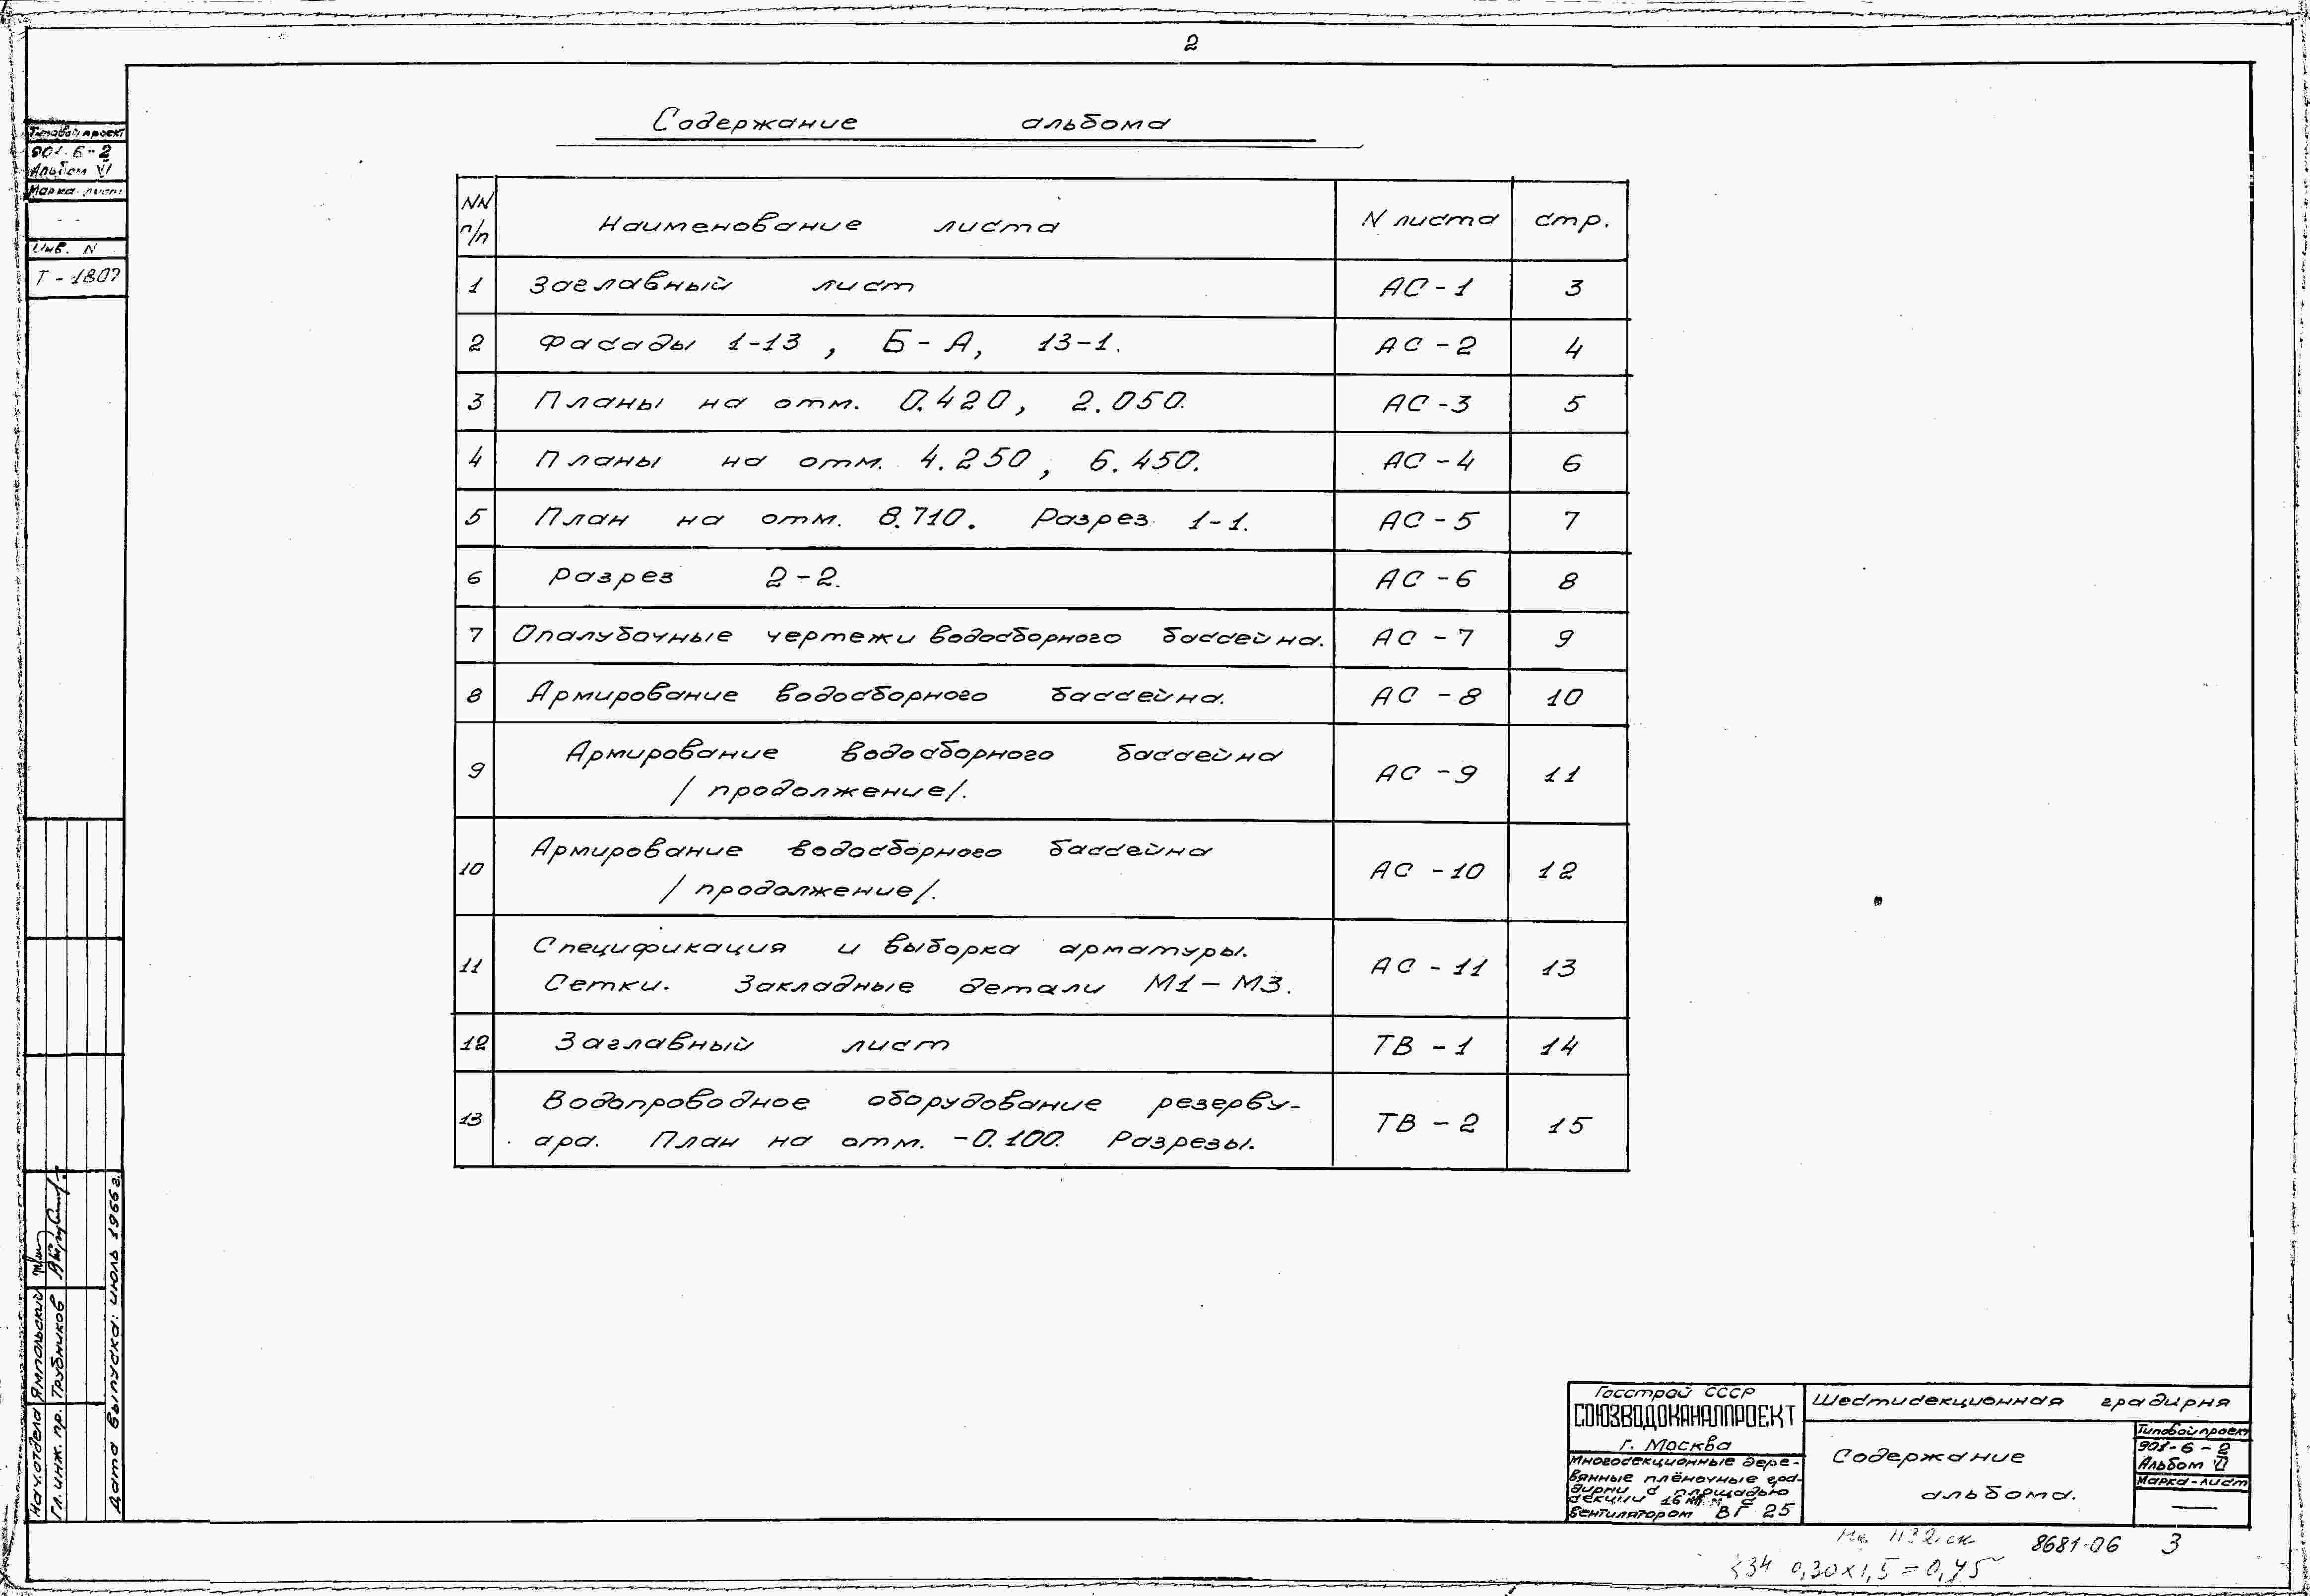 2
Содержание альбома
Типовой проект
901-6-2
Альбом VI
Марка-лист
Инв. N
Т-1807
NN п/п Наименование листа N листа стр.
1 Заглавный лист АС-1 3
2 Фасады 1-13, Б-А, 13-1. АС-2 4
3 Планы на отм. 0.420, 2.050. АС-3 5
4 Планы на отм. 4.250, 6.450. АС-4 6
5 План на отм. 8.710. Разрез 1-1. АС-5 7
6 Разрез 2-2. АС-6 8
7 Опалубочные чертежи водосборного бассейна. АС-7 9
8 Армирование водосборного бассейна. АС-8 10
9 Армирование водосборного бассейна
/продолжение/. АС-9 11
10 Армирование водосборного бассейна
/продолжение/. АС-10 12
11 Спецификация и выборка арматуры.
Сетки. Закладные детали М1-М3. АС-11 13
12 Заглавный лист ТВ-1 14
13 Водопроводное оборудование резерву-
ара. План на отм. -0.100. Разрезы. ТВ-2 15
Нач. отдела Ямпольский
Гл. инж. пр. Трубников
Дата выпуска: июль 1966 г.
Госстрой СССР
СОЮЗВОДОКАНАЛПРОЕКТ
г. Москва
Многосекционные дере-
вянные плёночные гра-
дирни с площадью
секции 16 кв. м с
вентилятором ВГ 25
Шестисекционная градирня
Содержание
альбома.
Типовой проект
901-6-2
Альбом VI
Марка-лист
8681-06 3
0,30х1,5=0,45